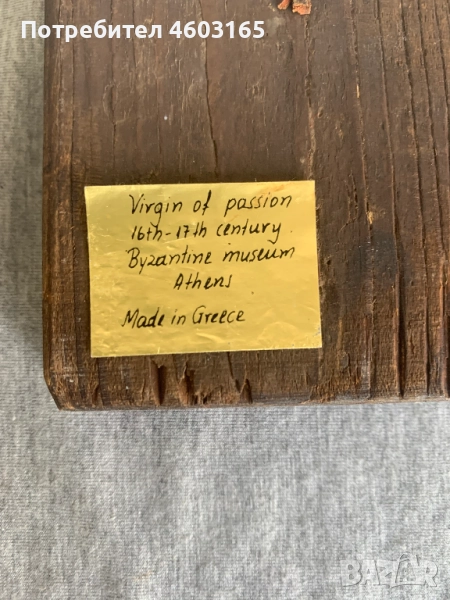 Потребител 4603165
Virgin of passion
16th-17th century.
Byzantine museum
Athens
Made in Greece
BAZAR